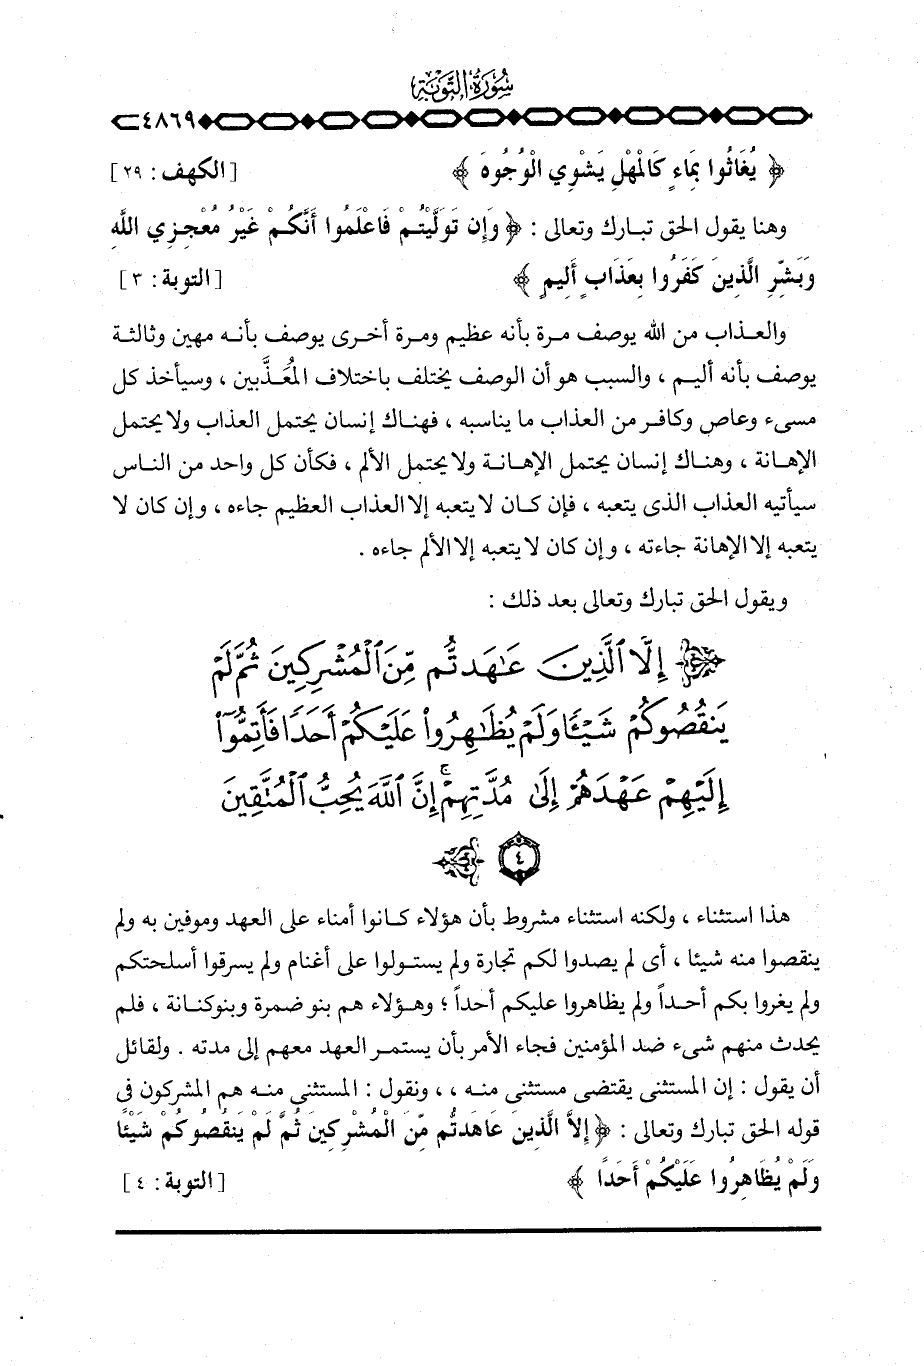 سُورَةُ التَّوْبَةِ
٤٨٦٩
﴿ يُغَاثُوا بِمَاءٍ كَالْمُهْلِ يَشْوِي الْوُجُوهَ ﴾ [الكهف: ٢٩]
وهنا يقول الحق تبارك وتعالى : ﴿ وَإِن تَوَلَّيْتُمْ فَاعْلَمُوا أَنَّكُمْ غَيْرُ مُعْجِزِي اللَّهِ
وَبَشِّرِ الَّذِينَ كَفَرُوا بِعَذَابٍ أَلِيمٍ ﴾ [التوبة: ٣]
والعذاب من الله يوصف مرة بأنه عظيم ومرة أخرى يوصف بأنه مهين وثالثة
يوصف بأنه أليم ، والسبب هو أن الوصف يختلف باختلاف المُعَذَّبين ، وسيأخذ كل
مسىء وعاص وكافر من العذاب ما يناسبه ، فهناك إنسان يحتمل العذاب ولا يحتمل
الإهانة ، وهناك إنسان يحتمل الإهانة ولا يحتمل الألم ، فكأن كل واحد من الناس
سيأتيه العذاب الذى يتعبه ، فإن كان لا يتعبه إلا العذاب العظيم جاءه ، وإن كان لا
يتعبه إلا الإهانة جاءته ، وإن كان لا يتعبه إلا الألم جاءه .
ويقول الحق تبارك وتعالى بعد ذلك :
إِلَّا ٱلَّذِينَ عَٰهَدتُّم مِّنَ ٱلْمُشْرِكِينَ ثُمَّ لَمْ
يَنقُصُوكُمْ شَيْـًٔا وَلَمْ يُظَٰهِرُوا۟ عَلَيْكُمْ أَحَدًا فَأَتِمُّوٓا۟
إِلَيْهِمْ عَهْدَهُمْ إِلَىٰ مُدَّتِهِمْ ۚ إِنَّ ٱللَّهَ يُحِبُّ ٱلْمُتَّقِينَ
٤
هذا استثناء ، ولكنه استثناء مشروط بأن هؤلاء كانوا أمناء على العهد وموفين به ولم
ينقصوا منه شيئا ، أى لم يصدوا لكم تجارة ولم يستولوا على أغنام ولم يسرقوا أسلحتكم
ولم يغروا بكم أحداً ولم يظاهروا عليكم أحداً ؛ وهؤلاء هم بنو ضمرة وبنوكنانة ، فلم
يحدث منهم شىء ضد المؤمنين فجاء الأمر بأن يستمر العهد معهم إلى مدته . ولقائل
أن يقول : إن المستثنى يقتضى مستثنى منه ، ، ونقول : المستثنى منه هم المشركون فى
قوله الحق تبارك وتعالى : ﴿ إِلاَّ الَّذِينَ عَاهَدتُّم مِّنَ الْمُشْرِكِينَ ثُمَّ لَمْ يَنقُصُوكُمْ شَيْئًا
وَلَمْ يُظَاهِرُوا عَلَيْكُمْ أَحَدًا ﴾ [التوبة: ٤]